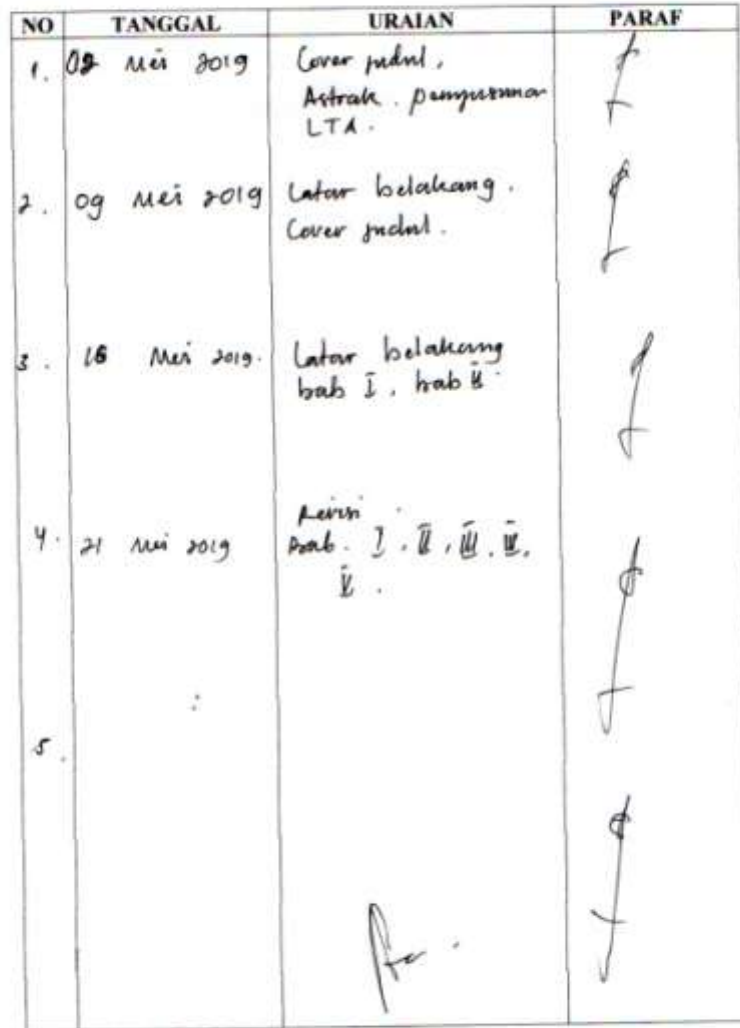 NO TANGGAL URAIAN PARAF
1. 02 Mei 2019 Cover judul,
Astrak. penyusunan
LTA.
2. 09 Mei 2019 Latar belakang.
Cover judul.
3. 16 Mei 2019. Latar belakang
bab I, bab II
Revisi
4. 21 Mei 2019 Bab. I, II, III, IV,
V.
5.